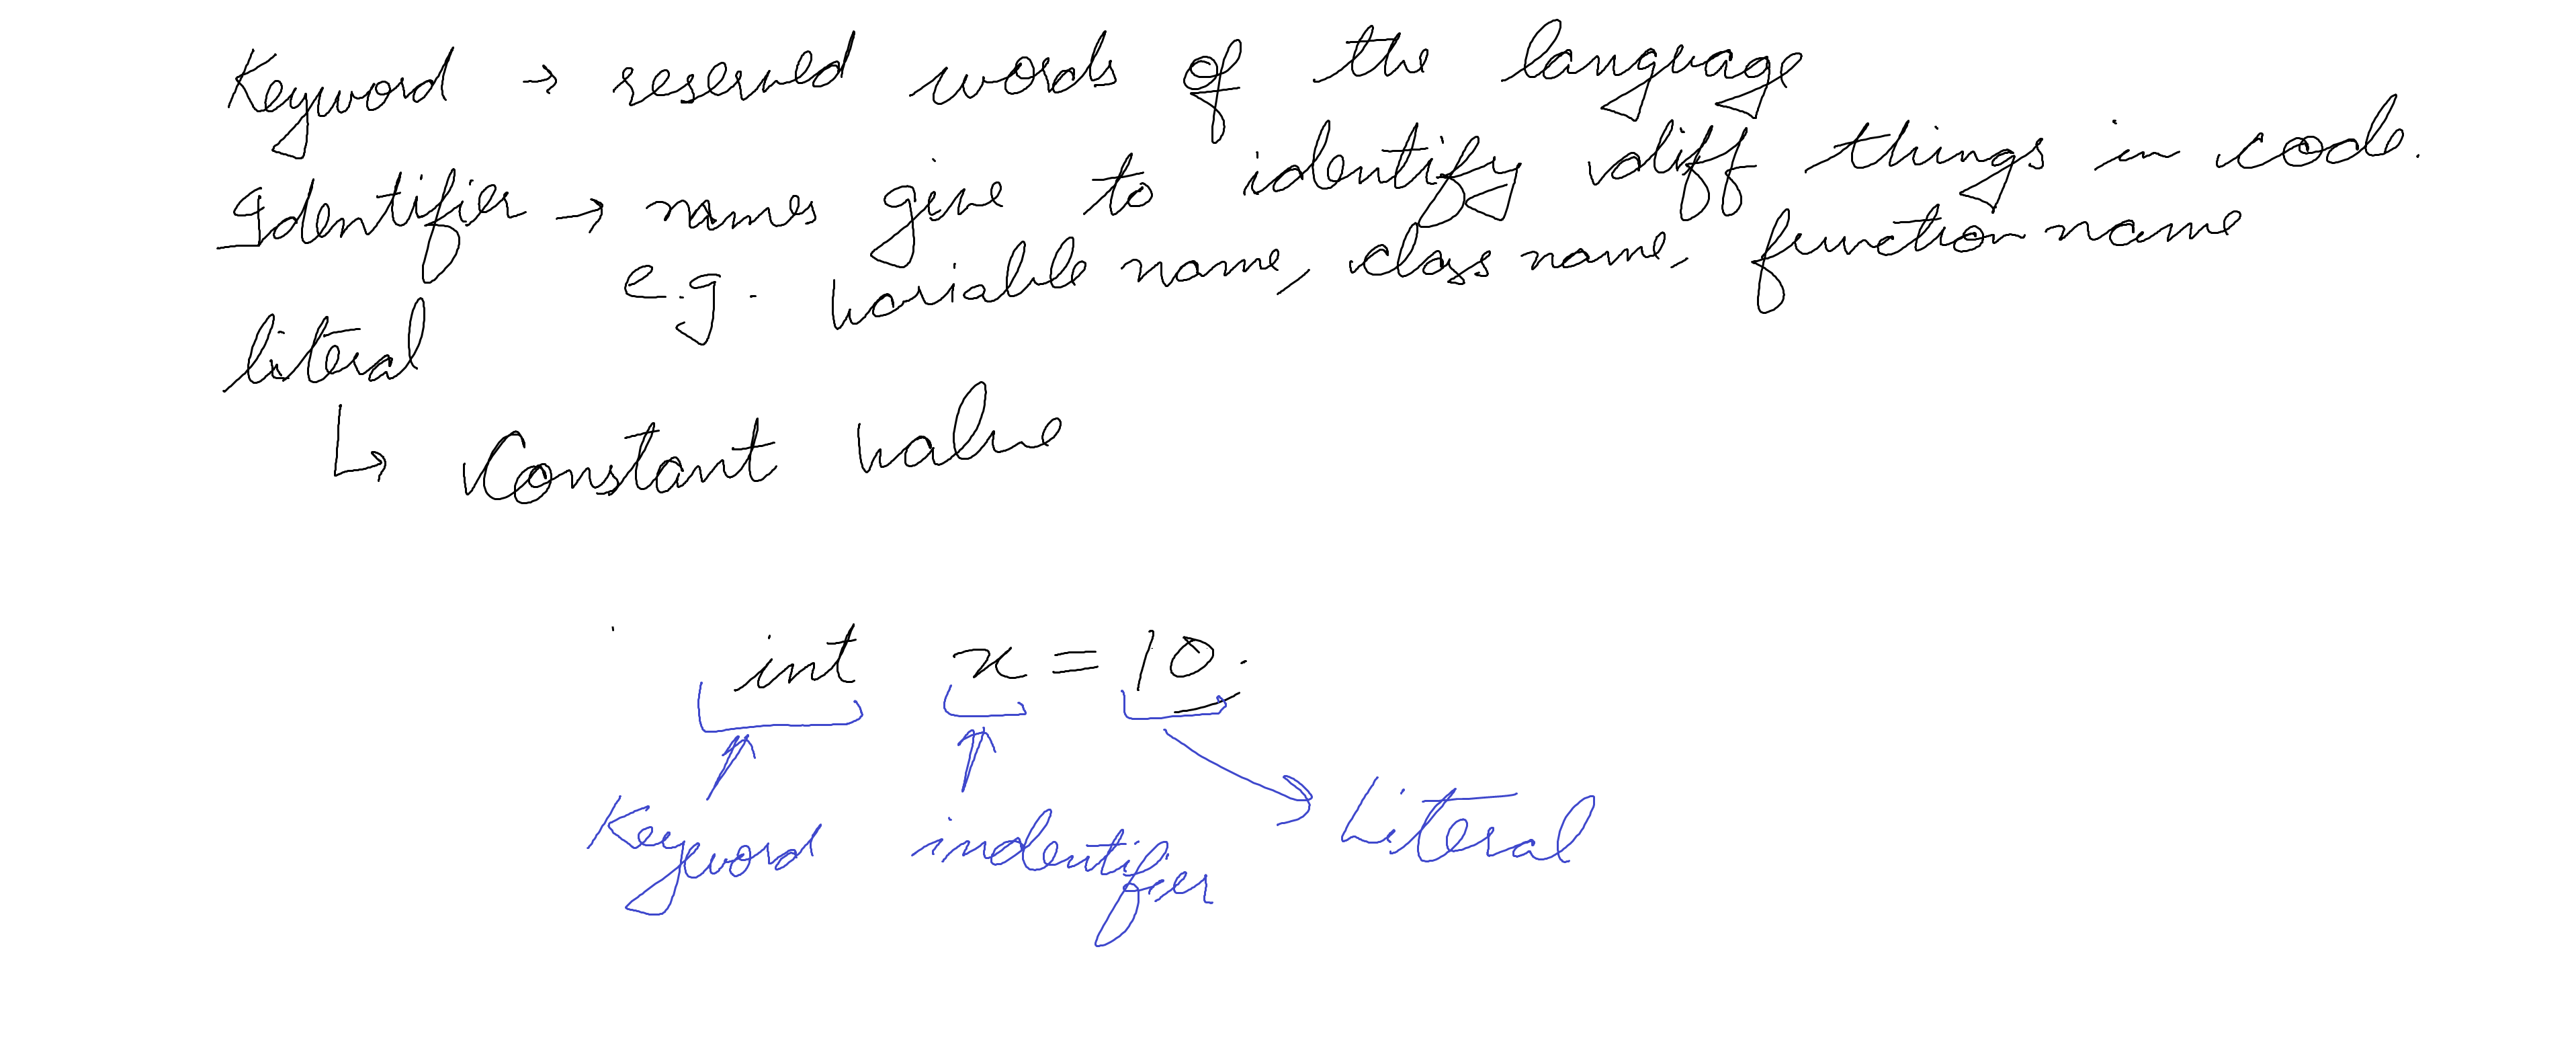 Keyword → reserved words of the language
Identifier → names give to identify diff things in code.
e.g. variable name, class name, function name
literal
↳ Constant value
int x = 10;
Keyword indentifier Literal